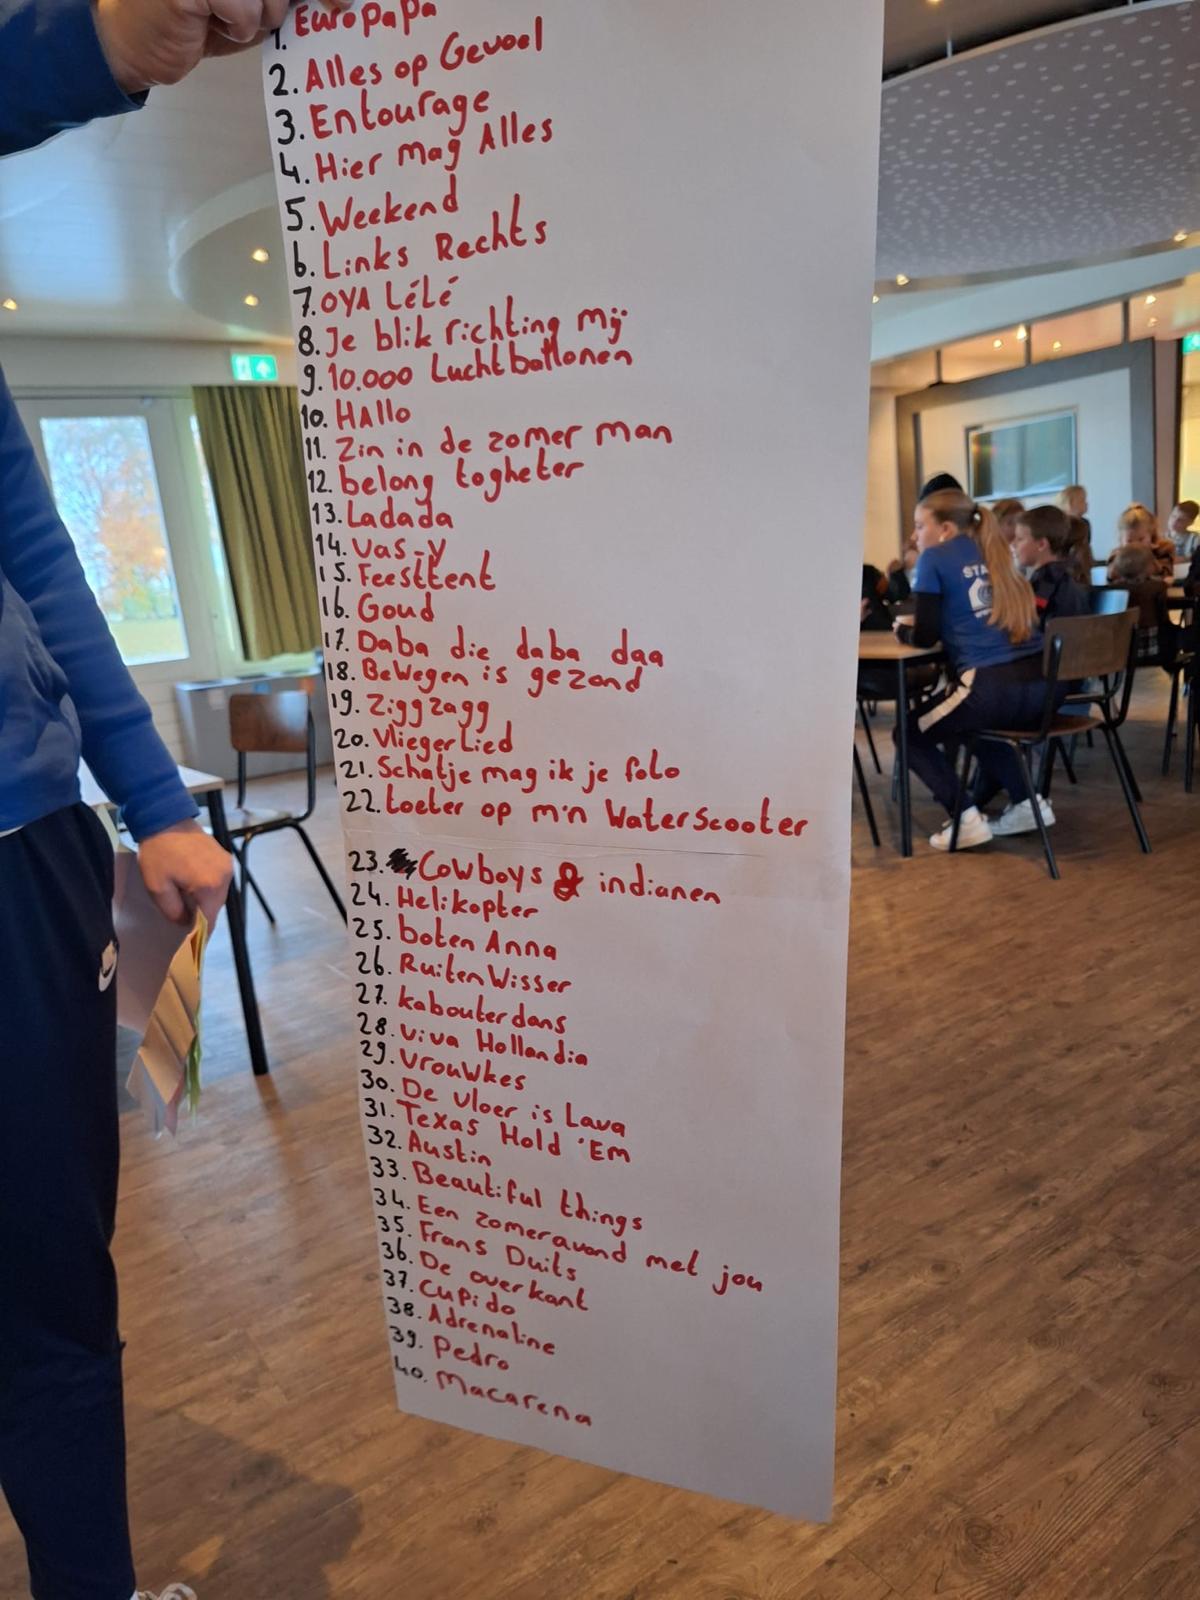 1. Europapa
2. Alles op Gevoel
3. Entourage
4. Hier mag Alles
5. Weekend
6. Links Rechts
7. OYA LéLé
8. Je blik richting mij
9. 10.000 Luchtballonen
10. HAllo
11. Zin in de zomer man
12. belong togheter
13. Ladada
14. Vas-y
15. Feesttent
16. Goud
17. Daba die daba daa
18. BeWegen is gezond
19. Ziggzagg
20. VliegerLied
21. Schatje mag ik je foto
22. toeter op m'n WaterScooter
23. Cowboys & indianen
24. Helikopter
25. boten Anna
26. RuitenWisser
27. kabouterdans
28. Viva Hollandia
29. VrouWkes
30. De vloer is Lava
31. Texas Hold 'Em
32. Austin
33. Beautiful things
34. Een zomeravond met jou
35. Frans Duits
36. De overkant
37. Cupido
38. Adrenaline
39. Pedro
40. Macarena
STA